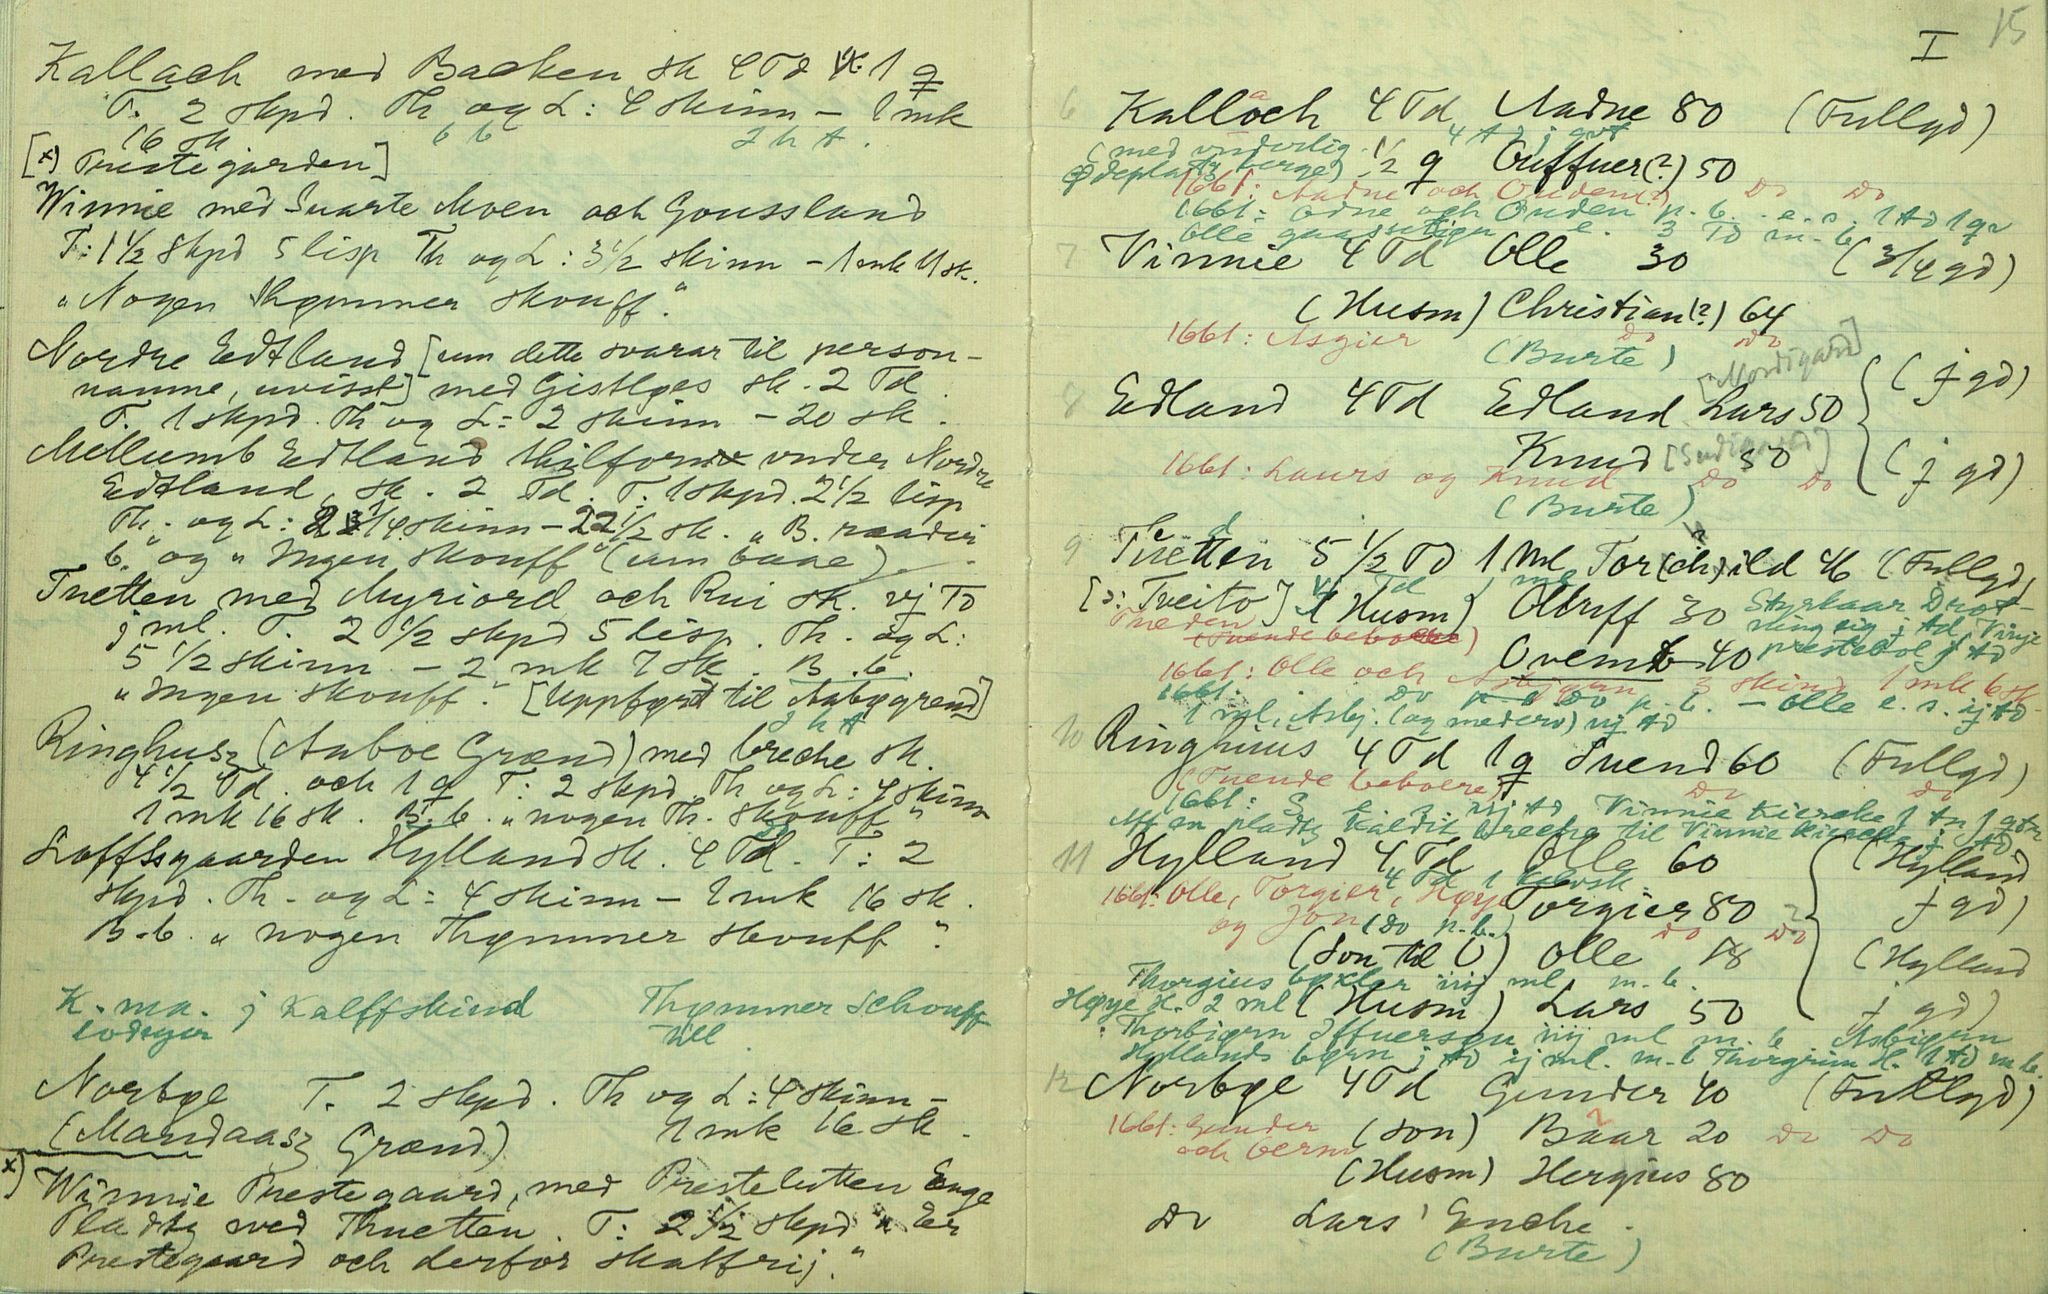 Kallach med Backen sk 4 Td 1 q
T. 2 skpd. Th og L: 4 skinn – 1 mk
16 sk b b 2 h A.
[x) Prestegarden]
Winnie med Suarte Moen och Goussland
T: 1 1/2 skpd 5 lisp Th og L: 3 1/2 skinn – 1 mk 11 sk.
"Nogen Thømmer skouff."
Nordre Edtland [um dette svarar til person-
namne, uvisst] med Gistløes sk. 2 Td
T. 1 skpd. Th og L: 2 skinn – 20 sk.
Mellumb Edtland thilforn vnder Nordre
Edtland, sk. 2 Td. T. 1 skpd. 2 1/2 lisp
Th. og L: 1/4 skinn – 22 1/2 sk. "B. raader
b." og "Ingen skouff" (um baae)
Tuetten med Myriord och Rui sk. vj Td
j ml. T. 2 1/2 skpd 5 lisp. Th. og L:
5 1/2 skinn – 2 mk 7 sk. B. b.
"Ingen skouff". [Uppført til Aabøgrend]
2 h A
Ringhusz (Aaboe Grænd) med breche sk.
4 1/2 Td. och 1 q T: 2 skpd. Th og L: 4 skinn
1 mk 16 sk. B. b. "nogen Th. skouff"
Loffsgaarden Hylland sk. 4 Td. T: 2
skpd. Th. og L: 4 skinn – 1 mk 16 sk.
B. b. "nogen Thømmer skouff".
K. ma. j Kalffskind Thømmer Schouff
till
Norbøe T. 2 skpd. Th og L: 4 skinn –
(Mandaasz Grænd) 1 mk 16 sk.
x) Winnie Prestegaard, med Prestelutten Enge
Pladtz ved Thuetten. T: 2 1/2 skpd "Er
Prestegaard och derfor skattfrij."
I 15
6 Kallach 4 Td Aadne 80 (Fullgd)
(med vnderlig. 4 td j qvt
ødeplatz berge) 1/2 q Guffuer(?) 50
1661: Aadne och Ouden Do Do
1661: Odne och Ouden p. b. e. s. 1 td 1 qr
Olle e. 3 Td m. b.
7 Vinnie 4 Td Olle 30 (3/4 gd)
(Husm) Christian(?) 64
1661: Asgier Do Do
(Burte)
[Nordigard]
8 Edland 4 Td Edland Lars 50 (j gd)
Knud [Sudigard] 50 (j gd)
1661: Laurs og Knud Do Do
(Burte)
9 Tuetten 5 1/2 Td 1 Ml Tor(ch)ild 46 (Fullgd)
[ɔ: Tveito] vj Td j ml
(Husm) Olluff 30 Styrkaar Drot-
Tueden ning eig j td Vinje
(Tuende beboere) prestebol j td
Ovemb 40
1661: Olle och Asbjørn 3 skind 1 mk 6 sk.
1661: Do p. b. – Olle e. s. ij td
1 ml, Asbj. (og medero) iij td
10 Ringhuus 4 Td 1 q Suend 60 (Fullgd)
(Tuende beboere) Do Do
1661: S iiij td Vinnie Kiercke 1 tn j qtr
Aff en pladtz kaldit breche til Vinnie Kiercke j td
11 Hylland 4 Td Olle 60 (Hylland
4 Td 1 kalvsk. j gd)
1661: Olle, Torgier, Høye Torgier 80
og Jon (Do p. b.) Do Do
(Son til O) Olle 18 (Hylland
Thorgius bøxlar iiij ml m. b. j gd)
Høye H. 2 ml (Husm) Lars 50
Thorbiørn Iffuersøn iiij ml m. b Asbiørn
Hyllands børn j td ij ml. m. b Thorgrim H. 1 td m b.
12 Norbøe 4 Td Gunder 40 (Fullgd)
1661: Gunder (Son) Baar 20 Do Do
och
(Husm) Hergius 80
Do Lars' Enche.
(Burte)